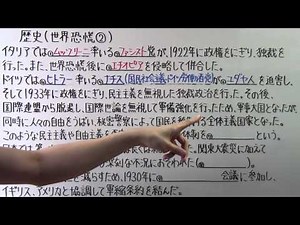 歴史(世界恐慌②)
イタリアでは①ムッソリーニ率いる②ファシスト党が、1922年に政権をにぎり、独裁政治を
行った。また、世界恐慌後に③エチオピアを侵略し併合した。
ドイツでは④ヒトラー率いる⑤ナチス(国民社会主義ドイツ労働者党)が⑥ユダヤ人を迫害し、
そして1933年に政権をにぎり、民主主義を無視した独裁政治を行った。その後、
国際連盟から脱退し、国際世論を無視して軍備強化を行ったため、軍事大国となったが、
同時に人々の自由をうばい、秘密警察によって国民を 全体主義国家となった。
このような民主主義や自由主義を という。
関東大震災に加えて
な不況におそわれた(
減らすため、1930年に 会議に参加し、
イギリス、アメリカと協調して軍縮条約を結んだ。